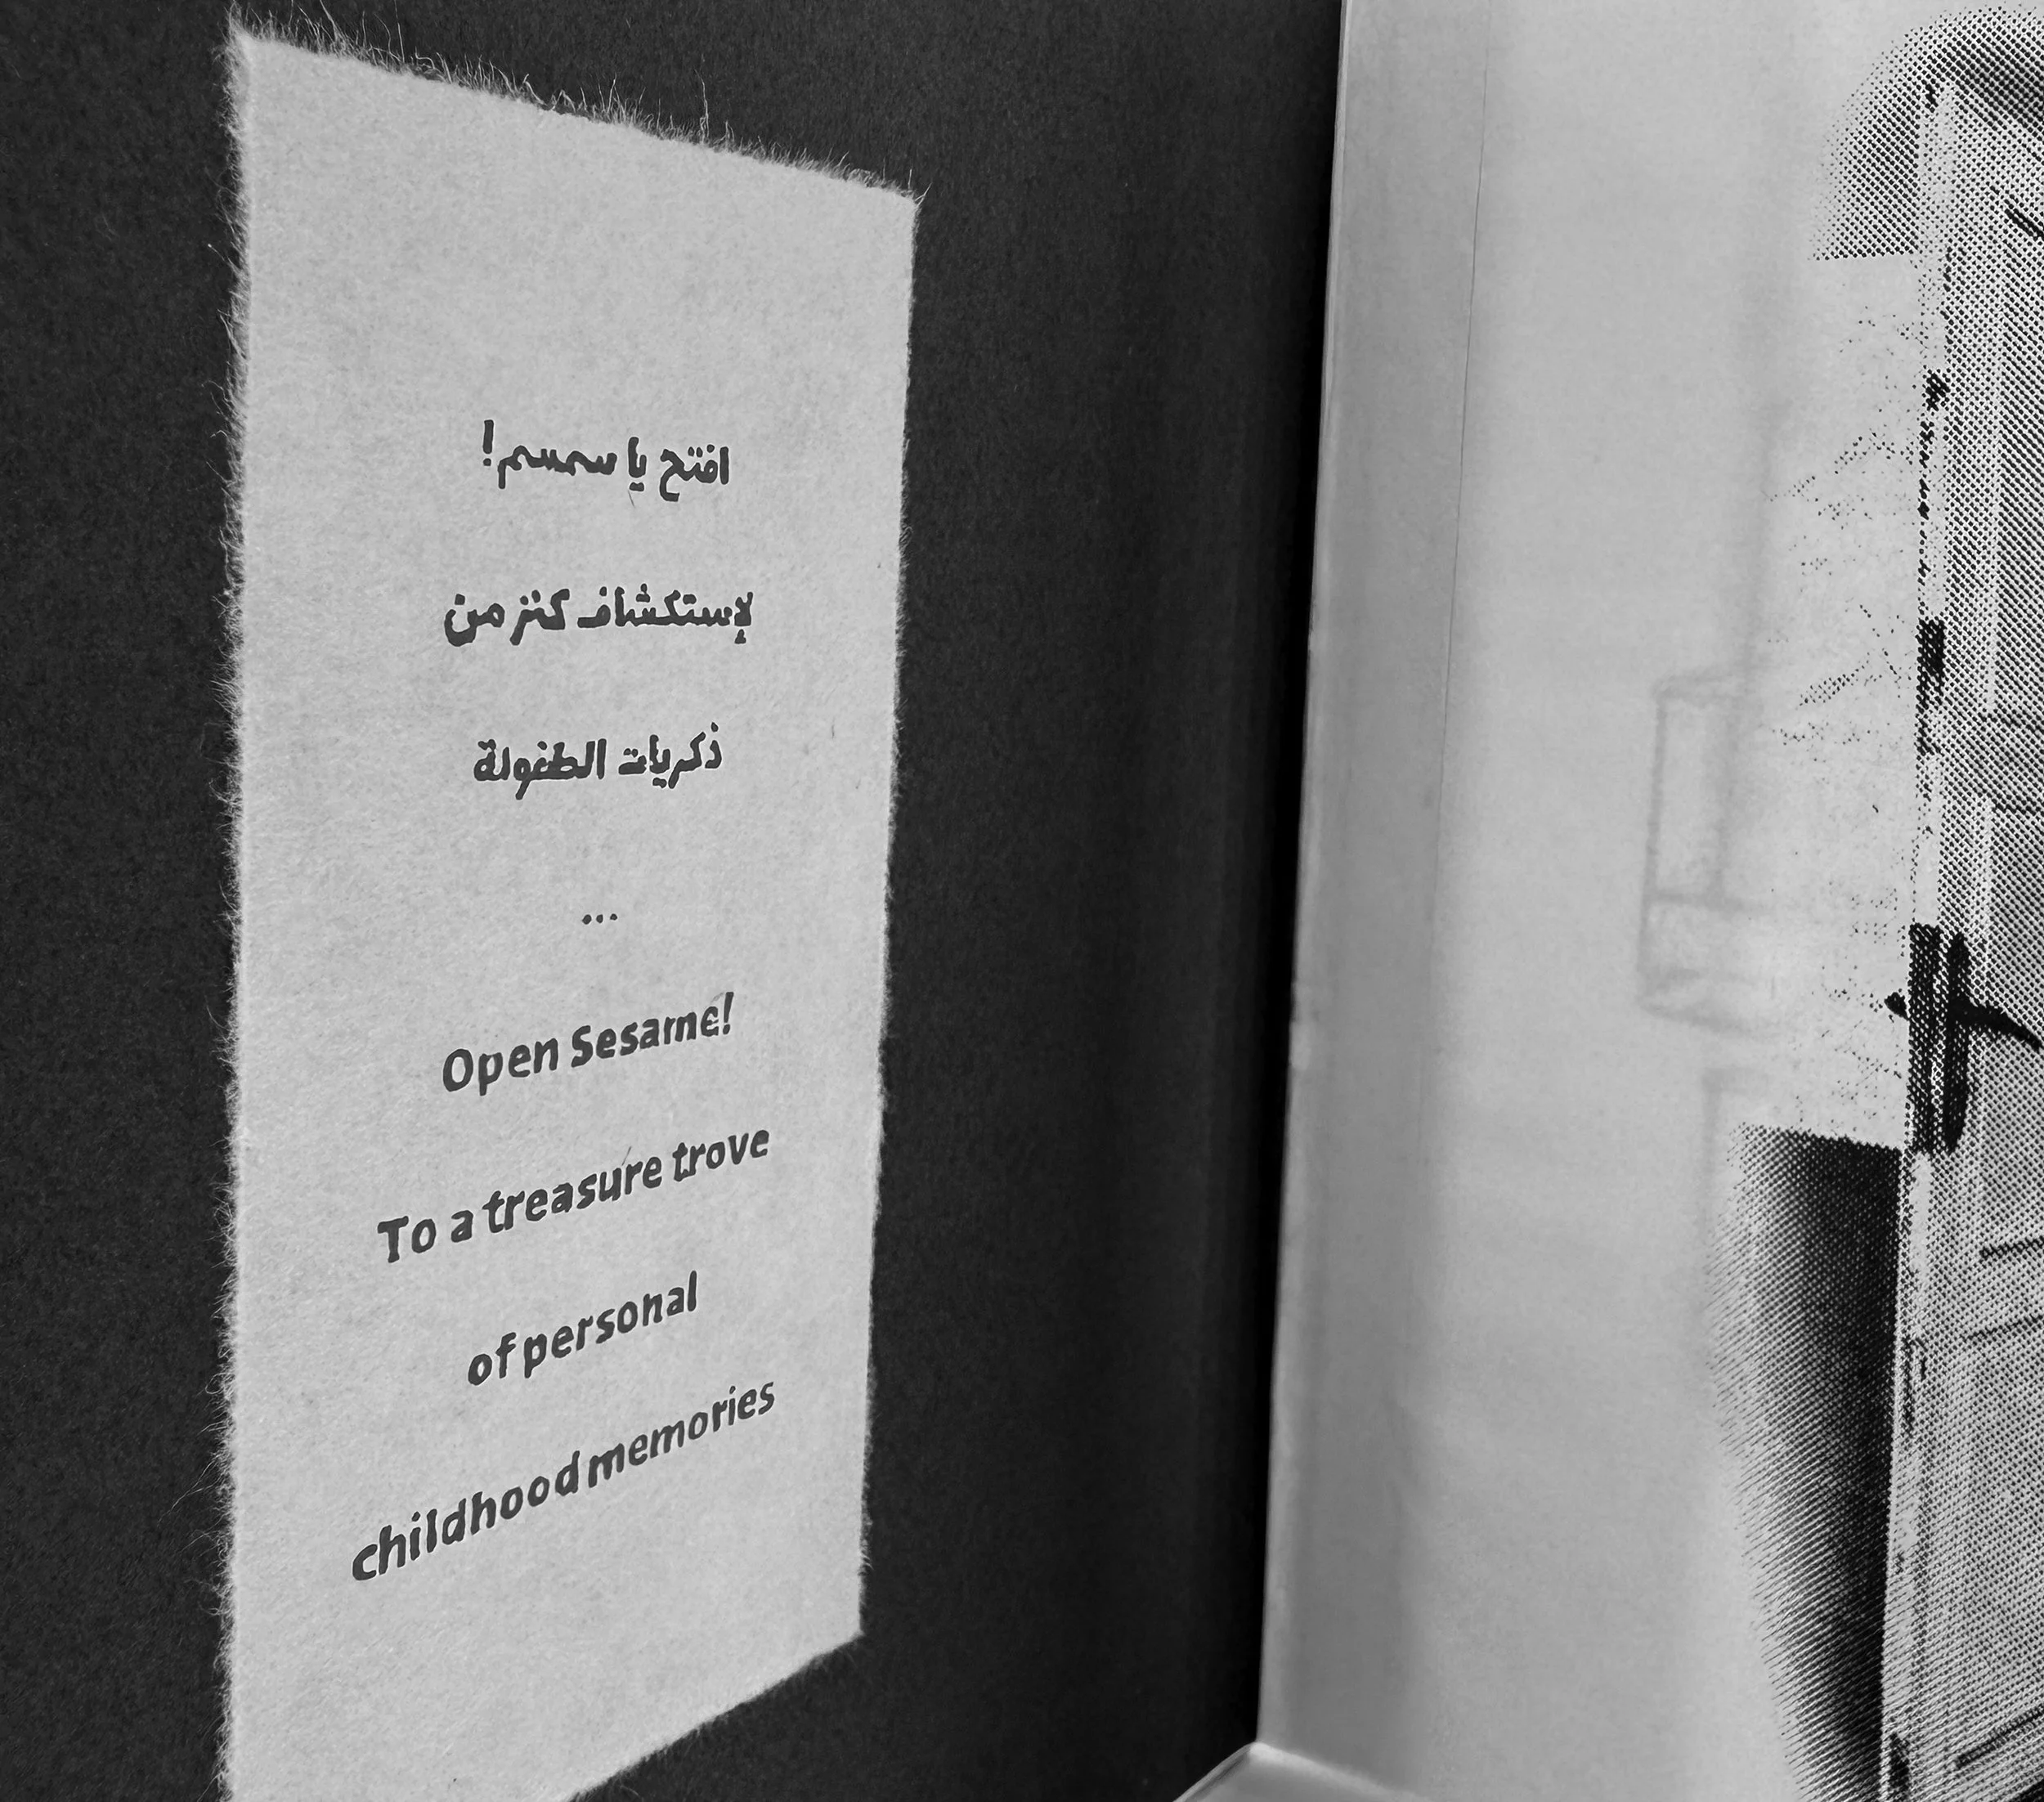 افتح يا سمسم!
لإستكشاف كنز من
ذكريات الطفولة
...
Open Sesame!
To a treasure trove
of personal
childhood memories